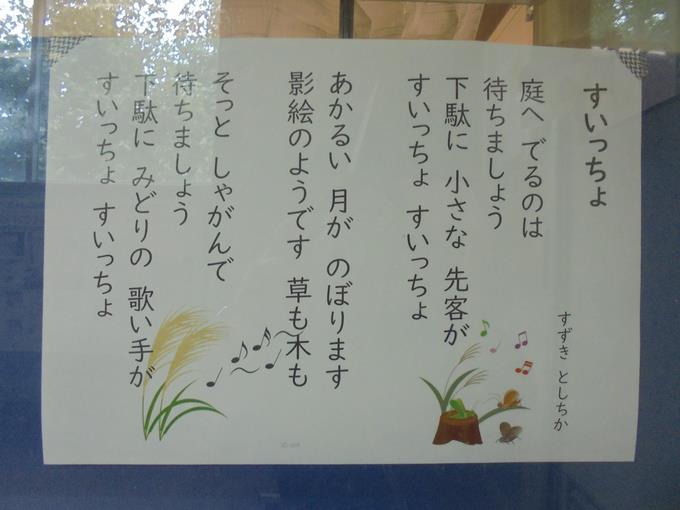 すいっちょ
すずき としちか
庭へ でるのは
待ちましょう
下駄に 小さな 先客が
すいっちょ すいっちょ
あかるい 月が のぼります
影絵のようです 草も木も
そっと しゃがんで
待ちましょう
下駄に みどりの 歌い手が
すいっちょ すいっちょ